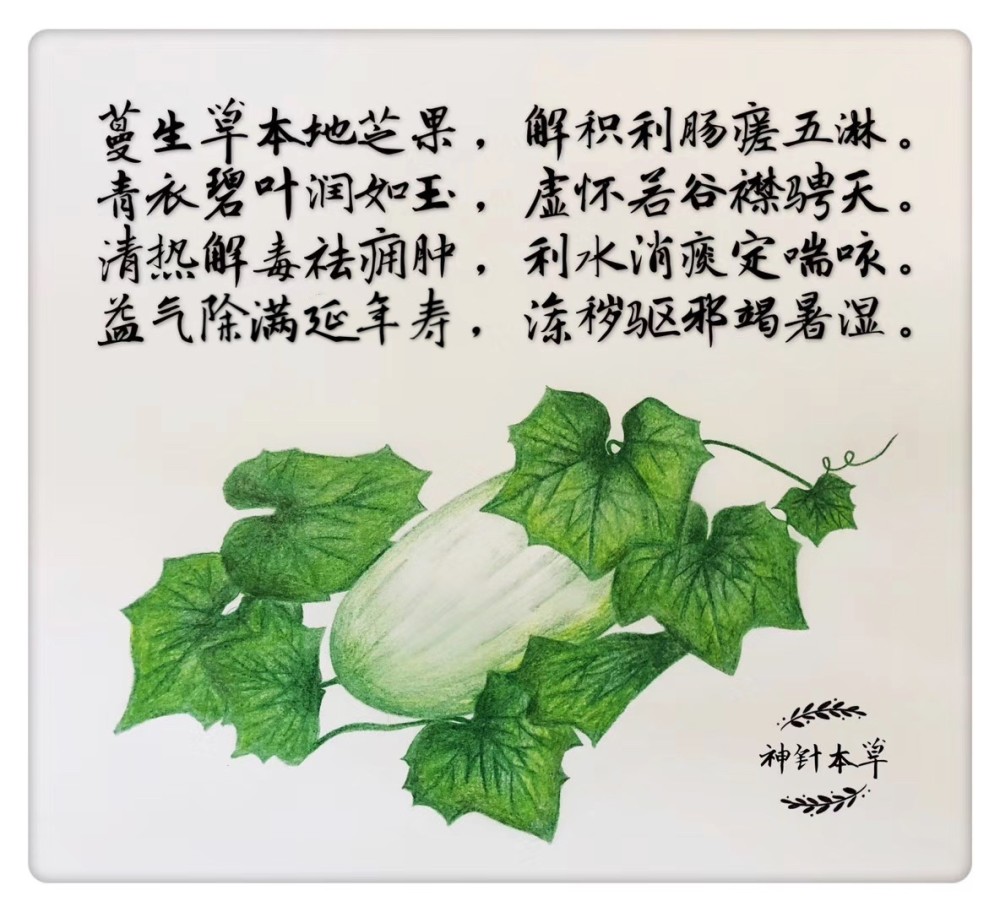 蔓生草本地芝果，解积利肠瘥五淋。
青衣碧叶润如玉，虚怀若谷襟骋天。
清热解毒祛痈肿，利水消痰定喘咳。
益气除满延年寿，涤秽驱邪竭暑湿。
神针本草